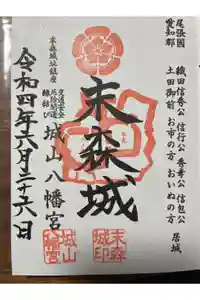 尾張國
愛知郡
織田信秀公 信行公 秀孝公 信包公
土田御前 お市の方 おいぬの方
居城
末森城
末森城址鎮座
交通安全
厄除開運
縁結び
城山八幡宮
令和四年六月二十六日
末森
城印
城山
八幡宮